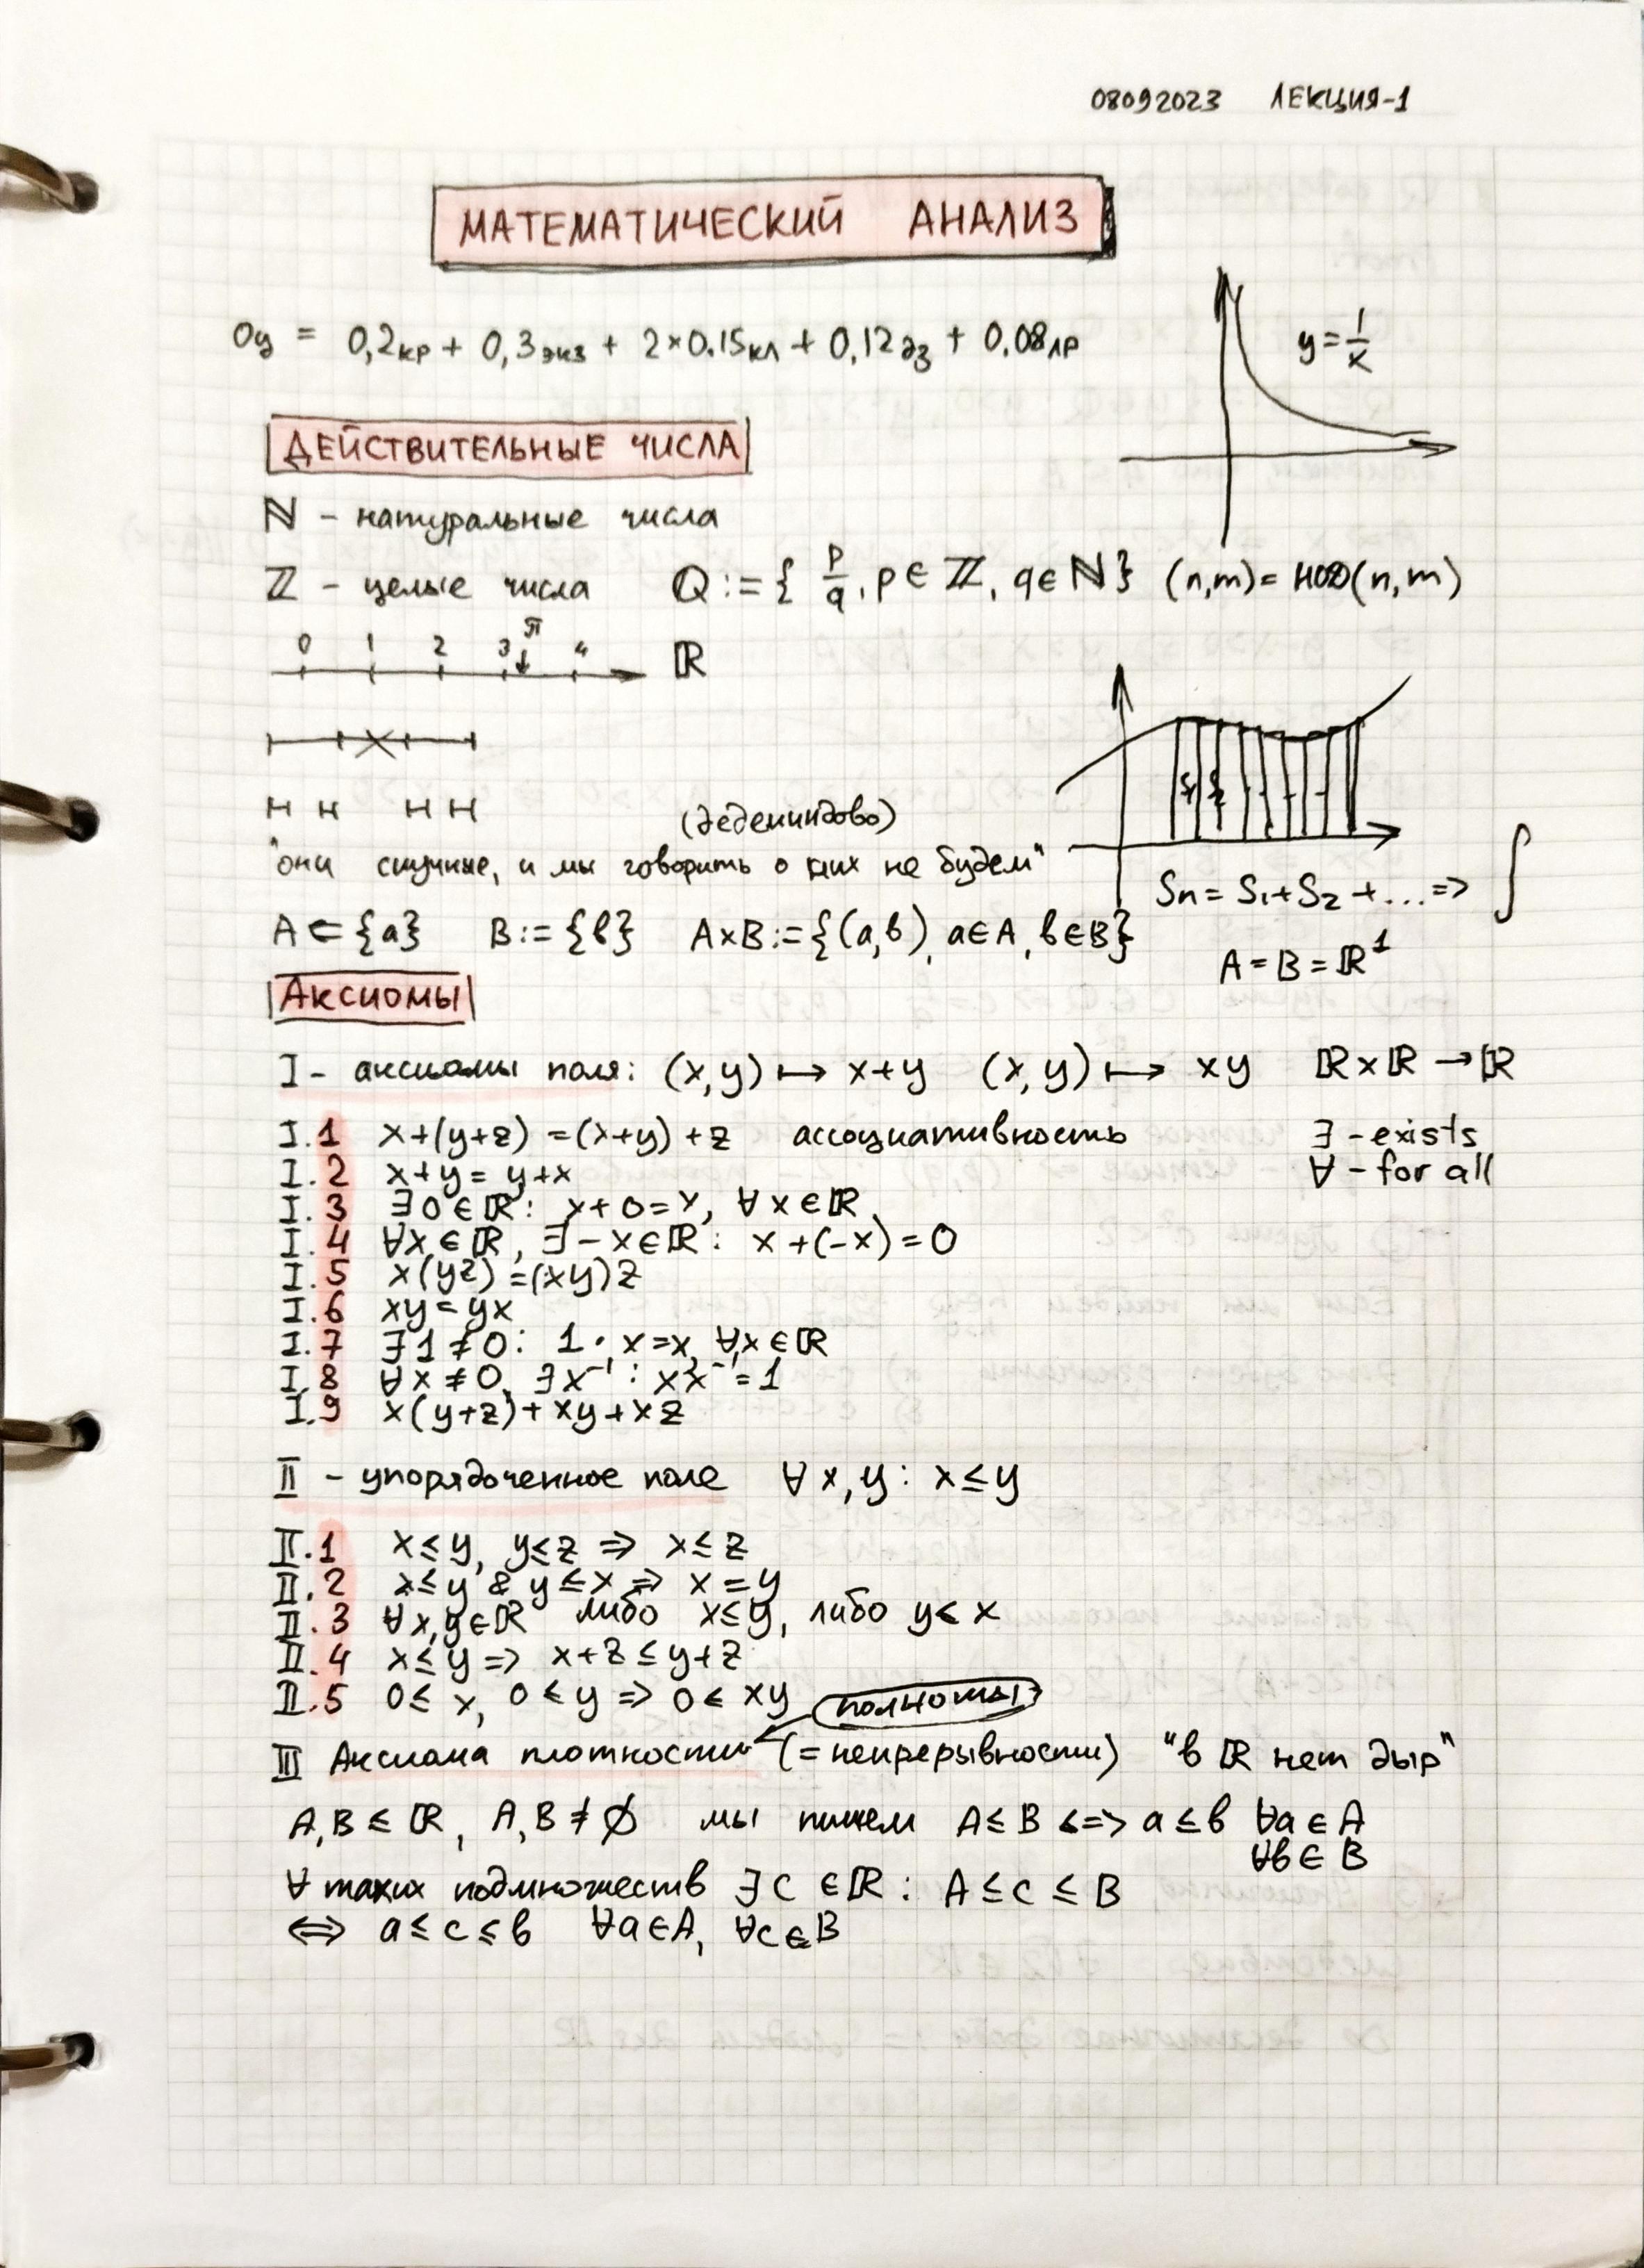 08092023 ЛЕКЦИЯ-1
МАТЕМАТИЧЕСКИЙ АНАЛИЗ
Оу = 0,2кр + 0,3экз + 2×0.15кл + 0,12дз + 0.08лр
y = 1/x
ДЕЙСТВИТЕЛЬНЫЕ ЧИСЛА
ℕ - натуральные числа
ℤ - целые числа ℚ := { p/q, p ∈ ℤ, q ∈ ℕ } (n,m) = НОД(n,m)
0 1 2 3 π 4 ℝ
(дедекиндово)
"они скучные, и мы говорить о них не будем"
Sn = S1 + S2 + ... => ∫
A ⊂ {a} B := {b} A×B := {(a,b), a∈A, b∈B}
A = B = ℝ¹
Аксиомы
I - аксиомы поля: (x,y) ↦ x+y (x,y) ↦ xy ℝ×ℝ → ℝ
I.1 x+(y+z) = (x+y)+z ассоциативность ∃ - exists
I.2 x+y = y+x ∀ - for all
I.3 ∃0∈ℝ: x+0=x, ∀x∈ℝ
I.4 ∀x∈ℝ, ∃-x∈ℝ: x+(-x)=0
I.5 x(yz) = (xy)z
I.6 xy = yx
I.7 ∃1≠0: 1·x=x, ∀x∈ℝ
I.8 ∀x≠0, ∃x⁻¹: xx⁻¹=1
I.9 x(y+z)+xy+xz
II - упорядоченное поле ∀x,y: x≤y
II.1 x≤y, y≤z => x≤z
II.2 x≤y & y≤x => x=y
II.3 ∀x,y∈ℝ либо x≤y, либо y≤x
II.4 x≤y => x+z≤y+z
II.5 0≤x, 0≤y => 0≤xy
полноты
III Аксиома плотности (=непрерывности) "в ℝ нет дыр"
A,B ≤ ℝ, A,B≠∅ мы пишем A≤B <=> a≤b ∀a∈A
∀b∈B
∀ таких подмножеств ∃c∈ℝ: A≤c≤B
⇔ a≤c≤b ∀a∈A, ∀c∈B